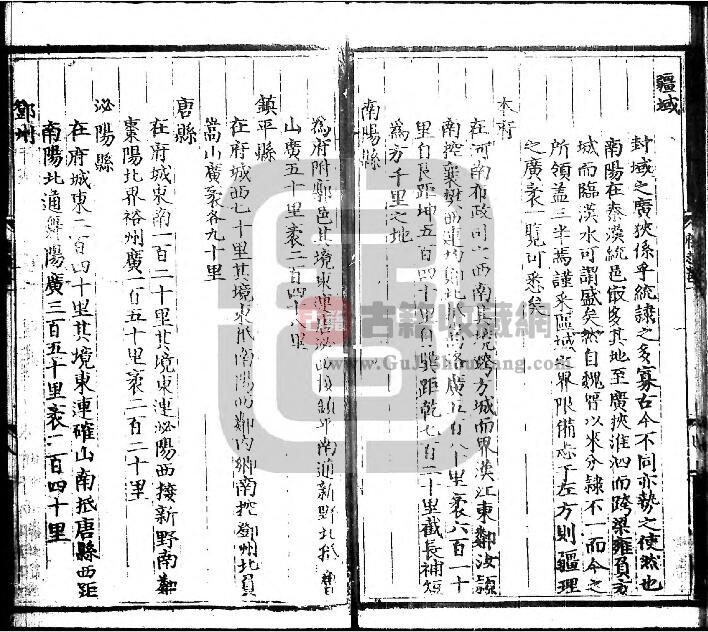 疆域
封域之廣狹係乎統隷之多寡古今不同亦勢之使然也
南陽在秦漢統邑最多其地至廣挾淮泗而跨梁雍負方
城而臨漢水可謂盛矣然自魏晉以來分隷不一而今之
所領盖三半焉謹采區域之界限備志于左方則疆理
之廣袤一覽可悉矣
本府
在河南布政司之西南其境跨方城而界漢江東鄰汝潁
南控襄樊西連均 北 廣五百八十里袤六百一十
里自艮距坤五百四十里自巽距乾七百二十里截長補短
爲方千里之地
南陽縣
爲府附郭邑其境東連泌西接鎮平南通新野北於
山廣五十里袤二百四十八里
鎮平縣
在府城西七十里其境東抵南陽西鄰内鄉南控鄧州北負
嵩山廣袤各九十里
唐縣
在府城東南一百二十里其境東連泌陽西接新野南鄰
棗陽北界裕州廣一百五十里袤一百二十里
泌陽縣
在府城東二百四十里其境東連確山南抵唐縣西距
南陽北通舞陽廣三百五十里袤二百四十里
鄧州
古籍
古籍收藏網
www.GuJiShouCang.com